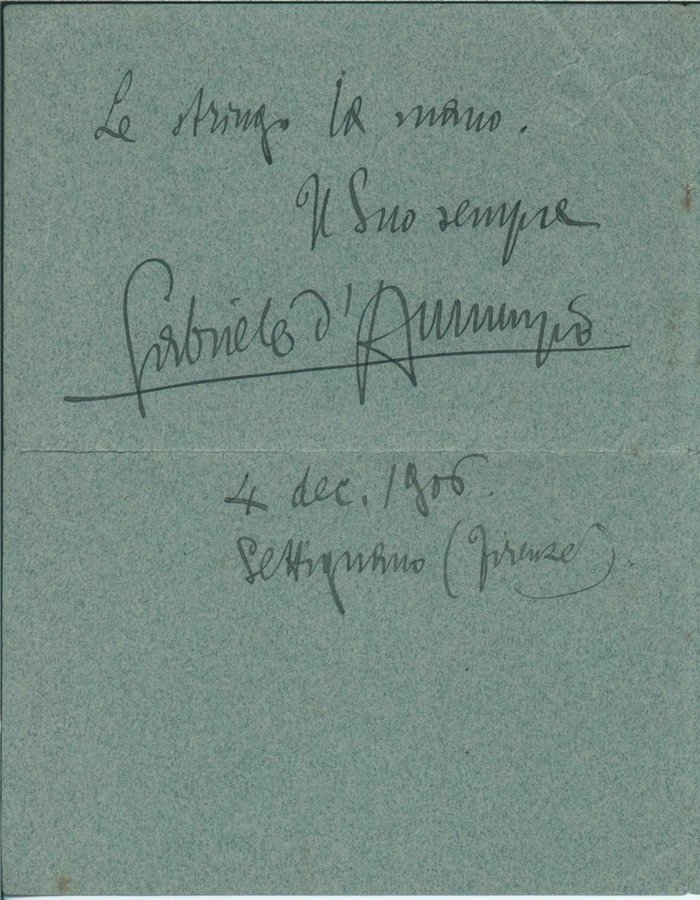 Le stringo la mano.
Il Suo sempre
Gabriele d'Annunzio
4 dec. 1906.
Settignano (Firenze)